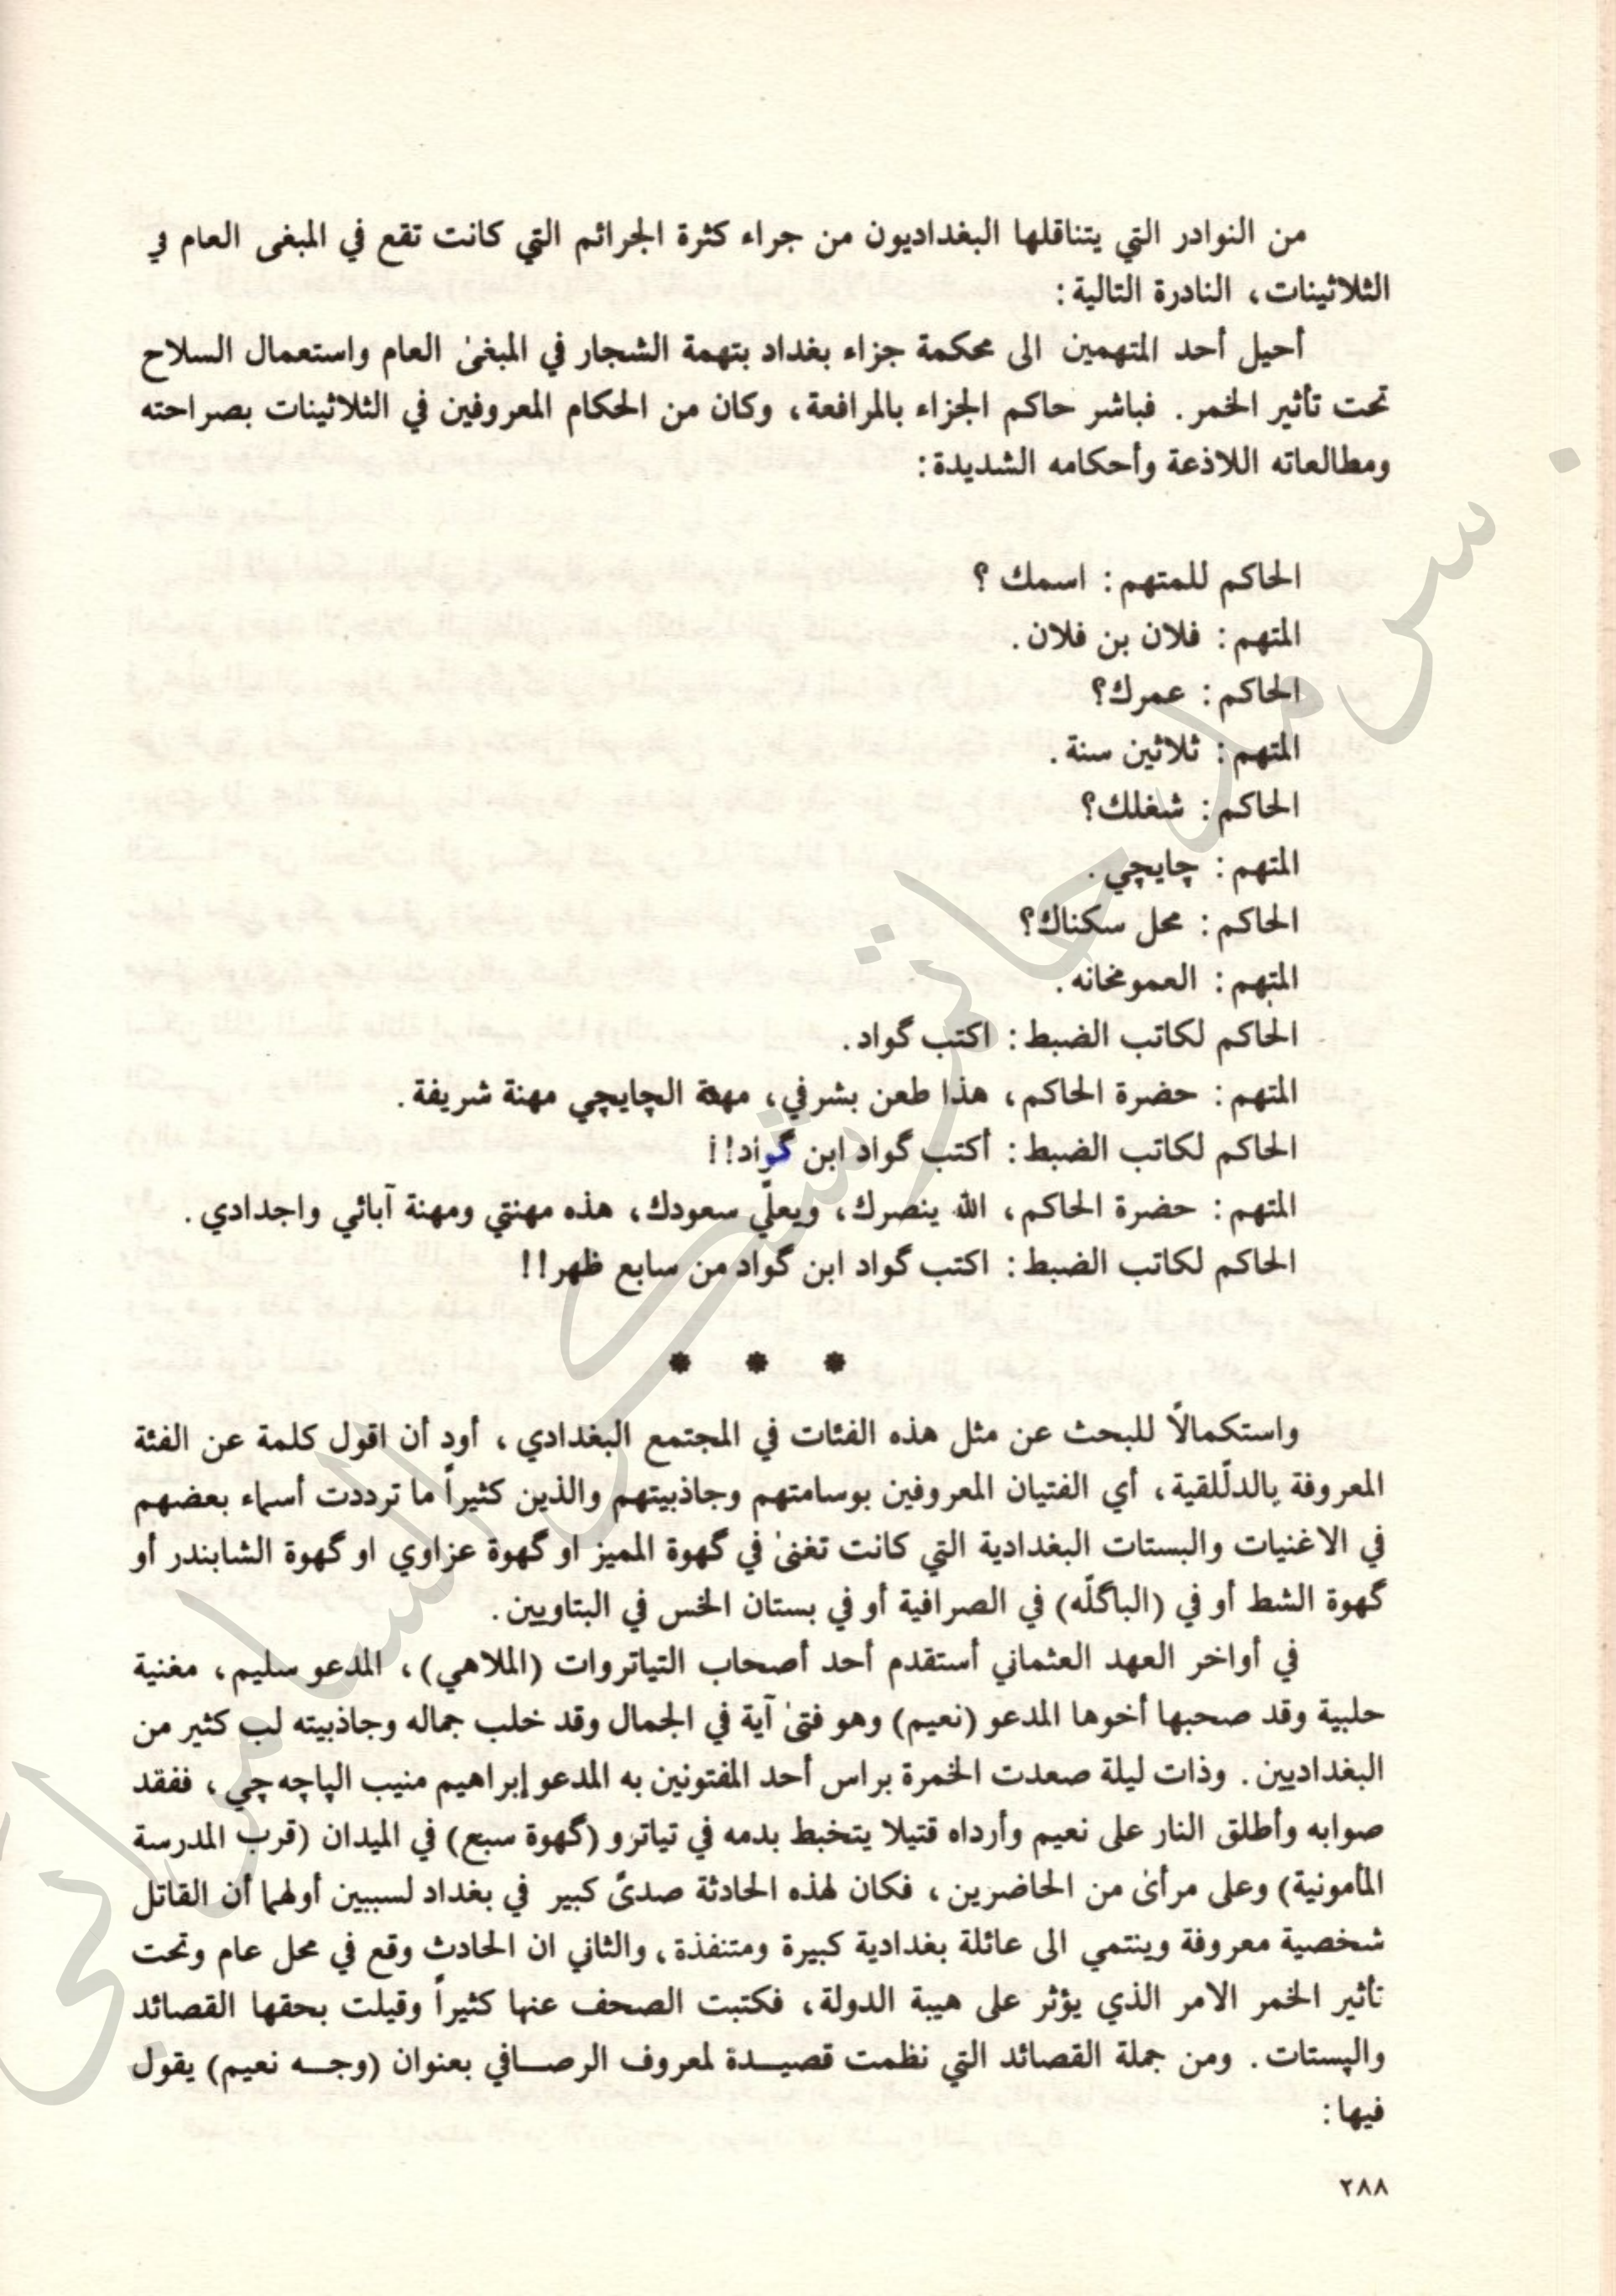 من النوادر التي يتناقلها البغداديون من جراء كثرة الجرائم التي كانت تقع في المبغى العام في
الثلاثينات، النادرة التالية:
أحيل أحد المتهمين الى محكمة جزاء بغداد بتهمة الشجار في المبغىٰ العام واستعمال السلاح
تحت تأثير الخمر. فباشر حاكم الجزاء بالمرافعة، وكان من الحكام المعروفين في الثلاثينات بصراحته
ومطالعاته اللاذعة وأحكامه الشديدة:
الحاكم للمتهم: اسمك ؟
المتهم: فلان بن فلان.
الحاكم: عمرك؟
المتهم: ثلاثين سنة.
الحاكم: شغلك؟
المتهم: چايچي.
الحاكم: محل سكناك؟
المتهم: العمومخانه.
الحاكم لكاتب الضبط: اكتب گواد.
المتهم: حضرة الحاكم، هذا طعن بشرفي، مهنة الچايچي مهنة شريفة.
الحاكم لكاتب الضبط: أكتب گواد ابن گواد!!
المتهم: حضرة الحاكم، الله ينصرك، ويعلّي سعودك، هذه مهنتي ومهنة آبائي واجدادي.
الحاكم لكاتب الضبط: اكتب گواد ابن گواد من سابع ظهر!!
* * *
واستكمالاً للبحث عن مثل هذه الفئات في المجتمع البغدادي، أود أن اقول كلمة عن الفئة
المعروفة بالدلّلقية، أي الفتيان المعروفين بوسامتهم وجاذبيتهم والذين كثيراً ما ترددت أسماء بعضهم
في الاغنيات والبستات البغدادية التي كانت تغنىٰ في گهوة المميز او گهوة عزاوي او گهوة الشابندر أو
گهوة الشط أو في (الباگلّه) في الصرافية أو في بستان الخس في البتاويين.
في أواخر العهد العثماني أستقدم أحد أصحاب التياتروات (الملاهي)، المدعو سليم، مغنية
حلبية وقد صحبها أخوها المدعو (نعيم) وهو فتىٰ آية في الجمال وقد خلب جماله وجاذبيته لب كثير من
البغداديين. وذات ليلة صعدت الخمرة براس أحد المفتونين به المدعو إبراهيم منيب الپاچه چي، ففقد
صوابه وأطلق النار على نعيم وأرداه قتيلا يتخبط بدمه في تياترو (گهوة سبع) في الميدان (قرب المدرسة
المأمونية) وعلى مرأىٰ من الحاضرين، فكان لهذه الحادثة صدىً كبير في بغداد لسببين أولهما أن القاتل
شخصية معروفة وينتمي الى عائلة بغدادية كبيرة ومتنفذة، والثاني ان الحادث وقع في محل عام وتحت
تأثير الخمر الامر الذي يؤثر على هيبة الدولة، فكتبت الصحف عنها كثيراً وقيلت بحقها القصائد
والپستات. ومن جملة القصائد التي نظمت قصيـــدة لمعروف الرصـــافي بعنوان (وجـــه نعيم) يقول
فيها:
٢٨٨